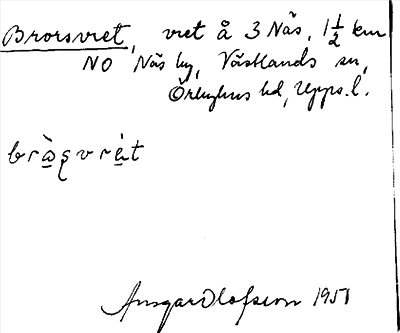 Brorsvret, vret å 3 Näs, 1½ km
NO Näs by, Västlands sn,
Örbyhus hd, Upps. l.
bràʂvrèt
Ansgar Olofsson 1951